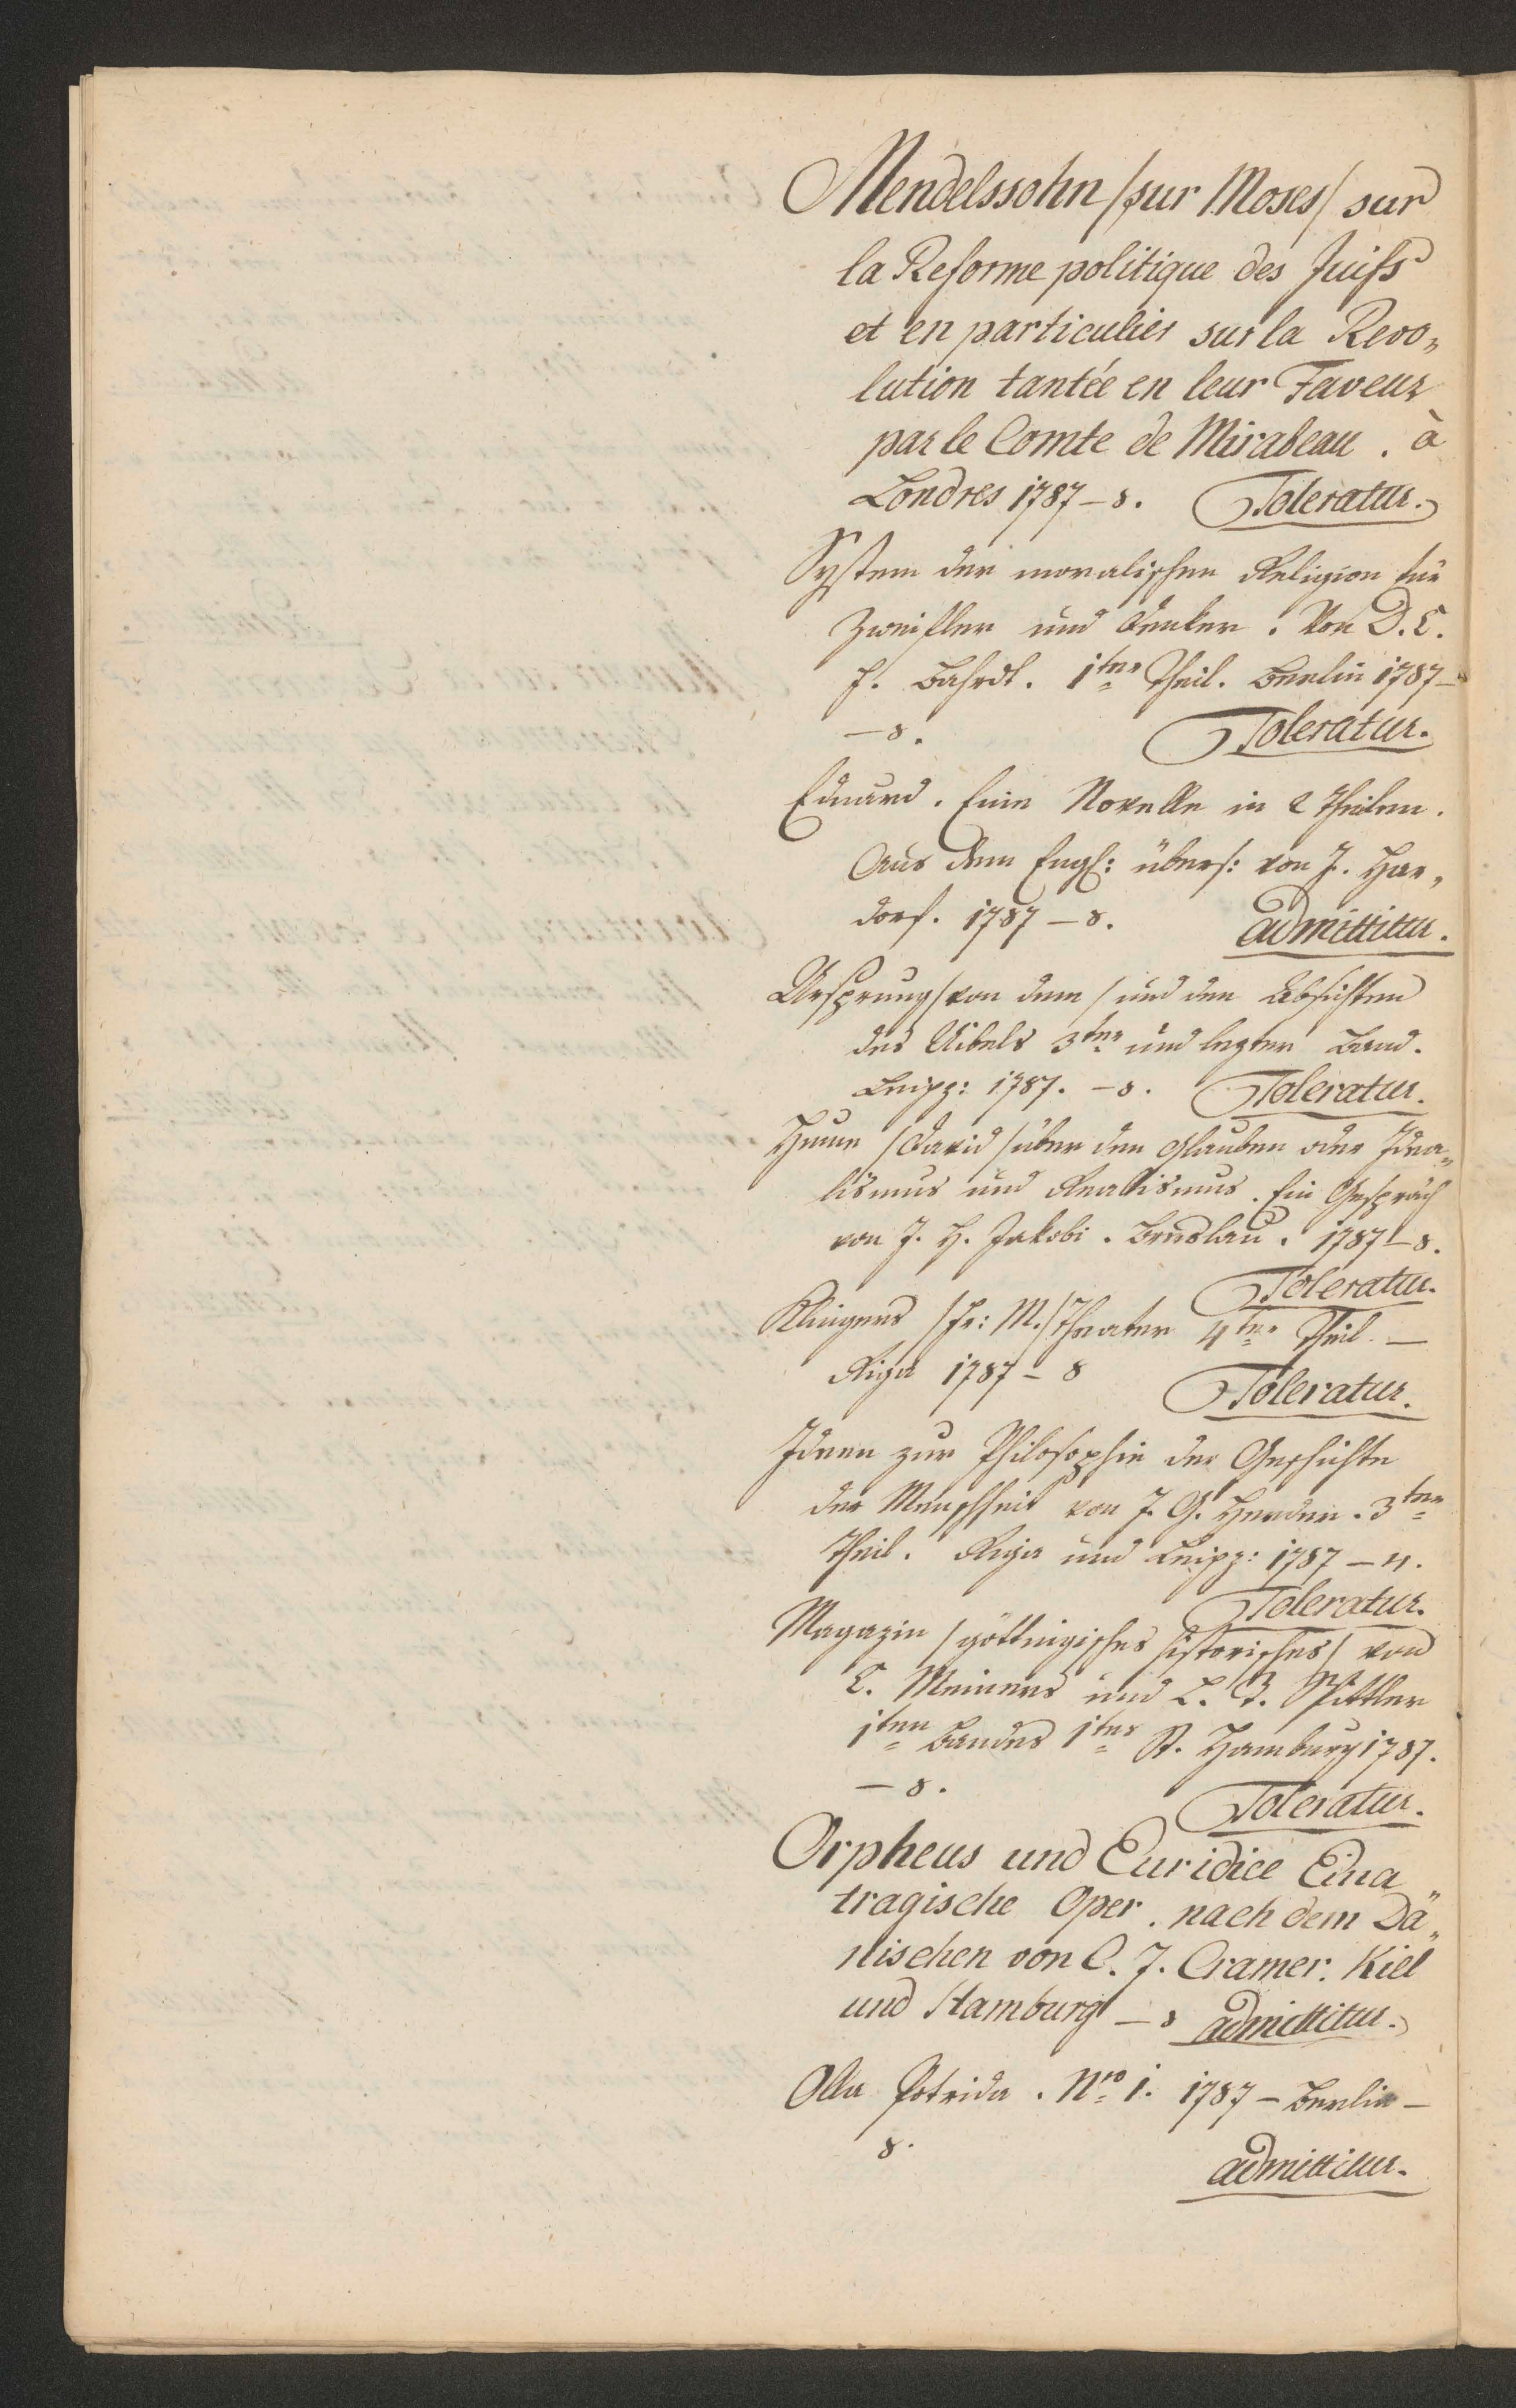 Mendelssohn /sur Moses/ sur
la Reforme politique des Juifs
et en particulier sur la Revo„
lution tantée en leur Faveur
par le Comte de Mirabeau. à
Londres 1787 – 8. Toleratur.
System der moralischen Religion für
Zweifler und Denker. Von D. C.
F. Bahrdt. 1ter Theil. Berlin 1787 –
– 8. Toleratur.
Eduard. Eine Novelle in 2 Theilen.
Aus dem Engl: übers: von J. Har„
dorf. 1787 – 8. admittitur.
Ursprung /von dem/ und den Absichten
des Uibels 3ter und lezter Band.
Leipz: 1787. – 8. Toleratur.
Hume /David/ über den Glauben oder Idea„
lismus und Realismus. Ein Gespräch
von F. H. Jakobi. Breslau. 1787 – 8.
Toleratur.
Klingers /Fr: M./ Theater 4ter Theil –
Riga 1787 – 8 Toleratur.
Ideen zur Philosophie der Geschichte
der Menschheit von J. G. Herder. 3ter
Theil. Riga und Leipz: 1787 – 4.
Toleratur.
Magazin /göttingisches historisches/ von
C. Meiners und L. T. Spittler
1ten Bandes 1tes St. Hamburg 1787.
– 8. Toleratur.
Orpheus und Euridice Eina
tragische Oper. nach dem Dä„
nischen von C. F. Cramer. Kiel
und Hamburg – 8 admittitur.
Olla Potrida. Nro 1. 1787 – Berlin –
8. admittitur.